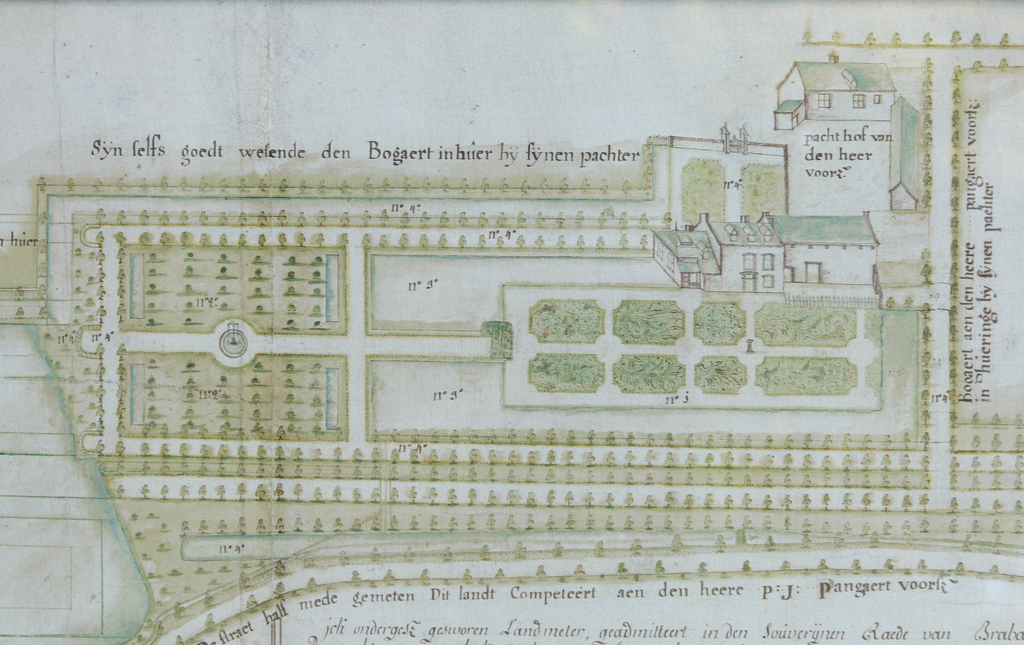 Sÿn selfs goedt wesende den Bogaert in hûer bÿ sÿnen pachter
pacht hof van
den heer
voorsz:
Bogaert aen den heere pangaert voorsz:
in hûeringe bÿ sÿnen pachter
hûer
n° 4°
n° 4°
n° 4°
n° 3°
n° 2°
n° 4°
n° 4°
n° 2°
n° 3°
n° j
n° 4°
n° 4°
n° 4°
De straet half mede gemeten Dit landt Competeert aen den heere p: J: Pangaert voorsz:
ick ondergesz: gesworen Landmeter, geadmitteert in den Soûverÿnen Raede van Braba